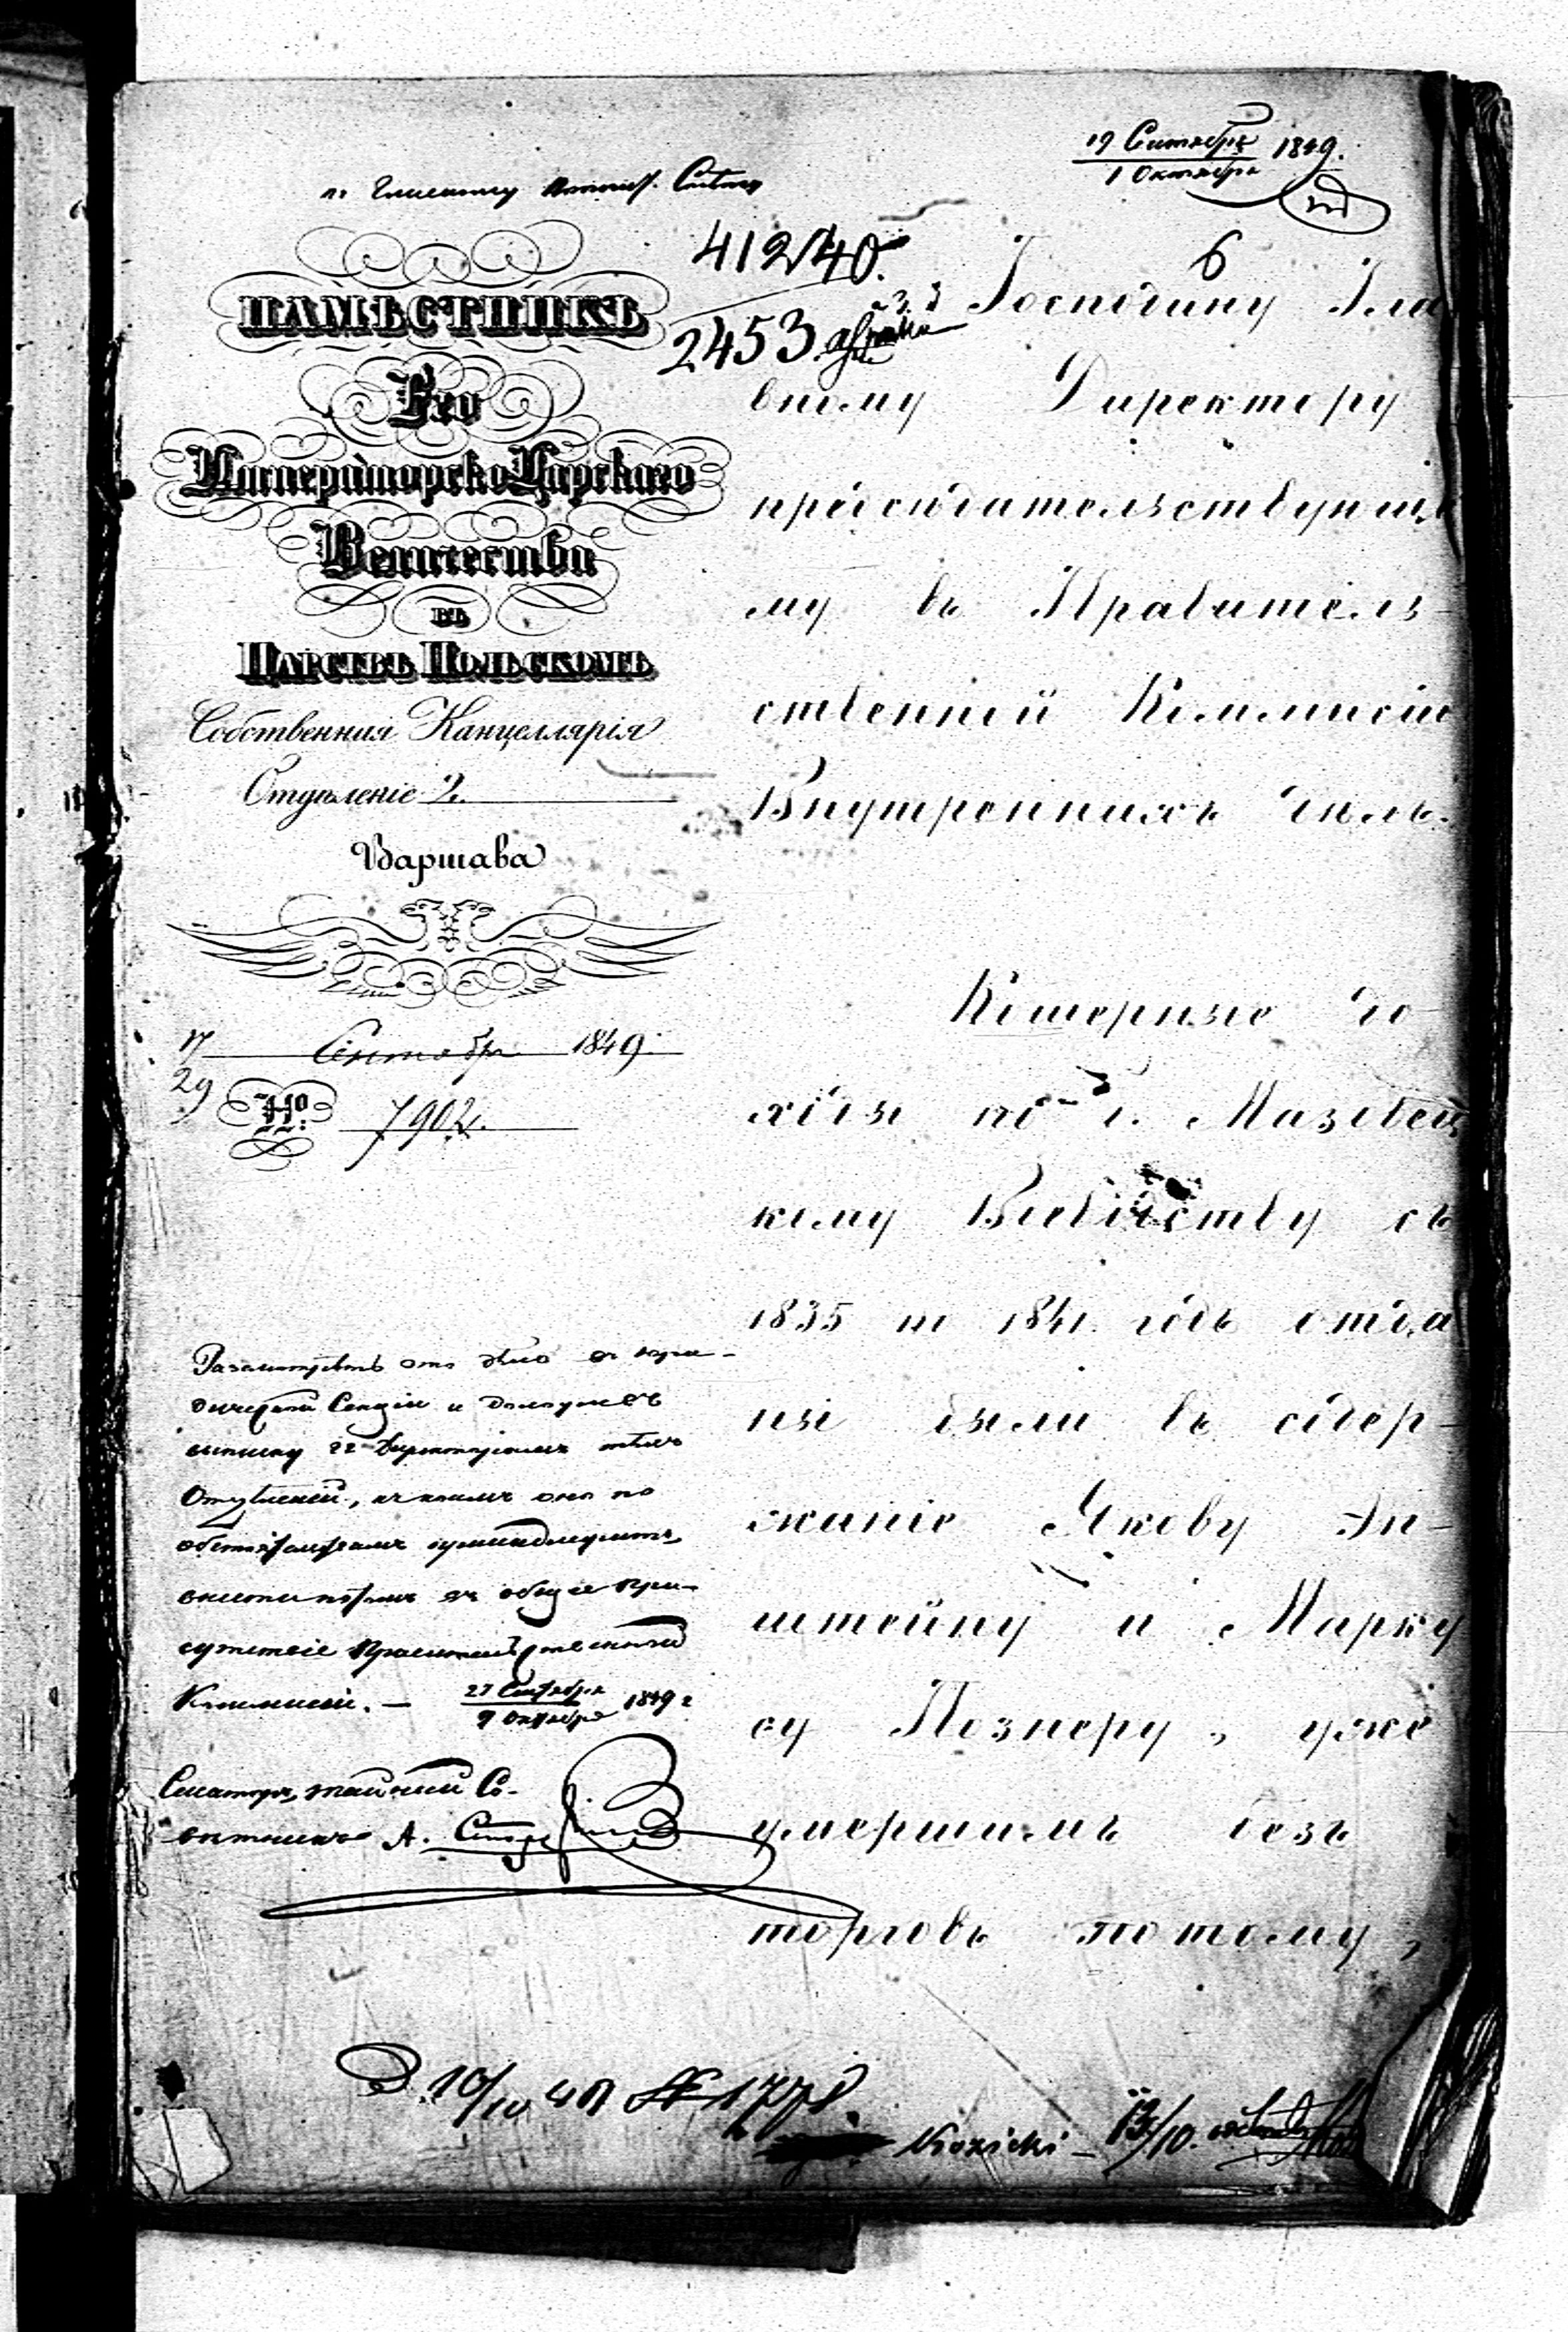 19 Сентября 1849.
1 Октября
412/40.
2453
6
НАМѢСТНИКЪ
Его
Императорско Царскаго
Величества
ВЪ
ЦАРСТВѢ ПОЛЬСКОМЪ
Собственная Канцелярія
Отдѣленіе 2.
Варшава
17 Сентября 1849.
29
№ 7902.
Господину Гла
вному Директору
предсѣдательствующе
му въ Правитель-
ственной Коммисіи
Внутреннихъ дѣлъ.
Кошерные до-
ходы по г. Мазовец
кому Воеводству съ
1835 по 1841 годъ отда
ны были въ содер-
жаніе Якову Эп-
штейну и Марку
су Познеру, уже
умершимъ безъ
торговъ потому,
Разсмотрѣть это дѣло въ юри-
дической Секціи и
выписку гг Директорамъ
Отдѣленій,
обстоятельствамъ принадлежитъ,
внести потомъ въ общее при-
сутствіе Правительственной
Коммисіи. — 27 Сентября 1849 г
9 Октября
Сенаторъ, тайный Со-
вѣтникъ А.
Kozicki – 13/10.